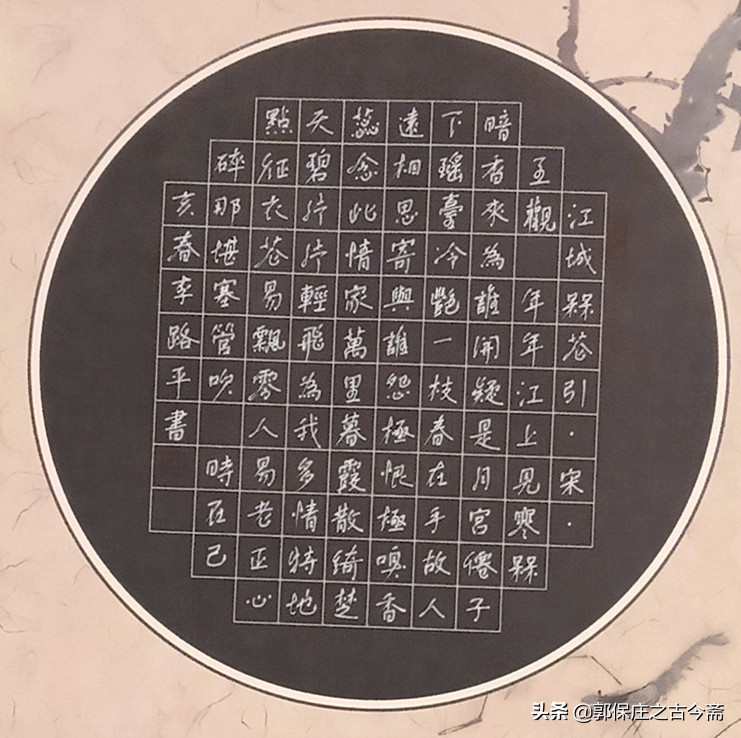 江城槑花引·宋·
王觀 年年江上見寒槑
暗香來為誰開疑是月宮僊子
下瑶臺冷艷一枝春在手故人
遠相思寄與誰怨極恨極嗅香
蕊念此情家萬里暮霞散綺楚
天碧片片輕飛為我多情特地
點征衣花易飄零人易老正心
碎那堪塞管吹 時在己
亥春李路平書
头条 @郭保庄之古今斋